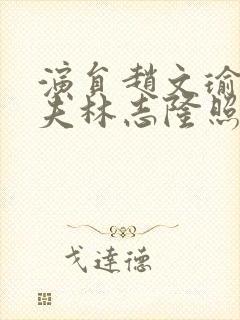 演員趙文瑜
夫林志隆照
戈達德